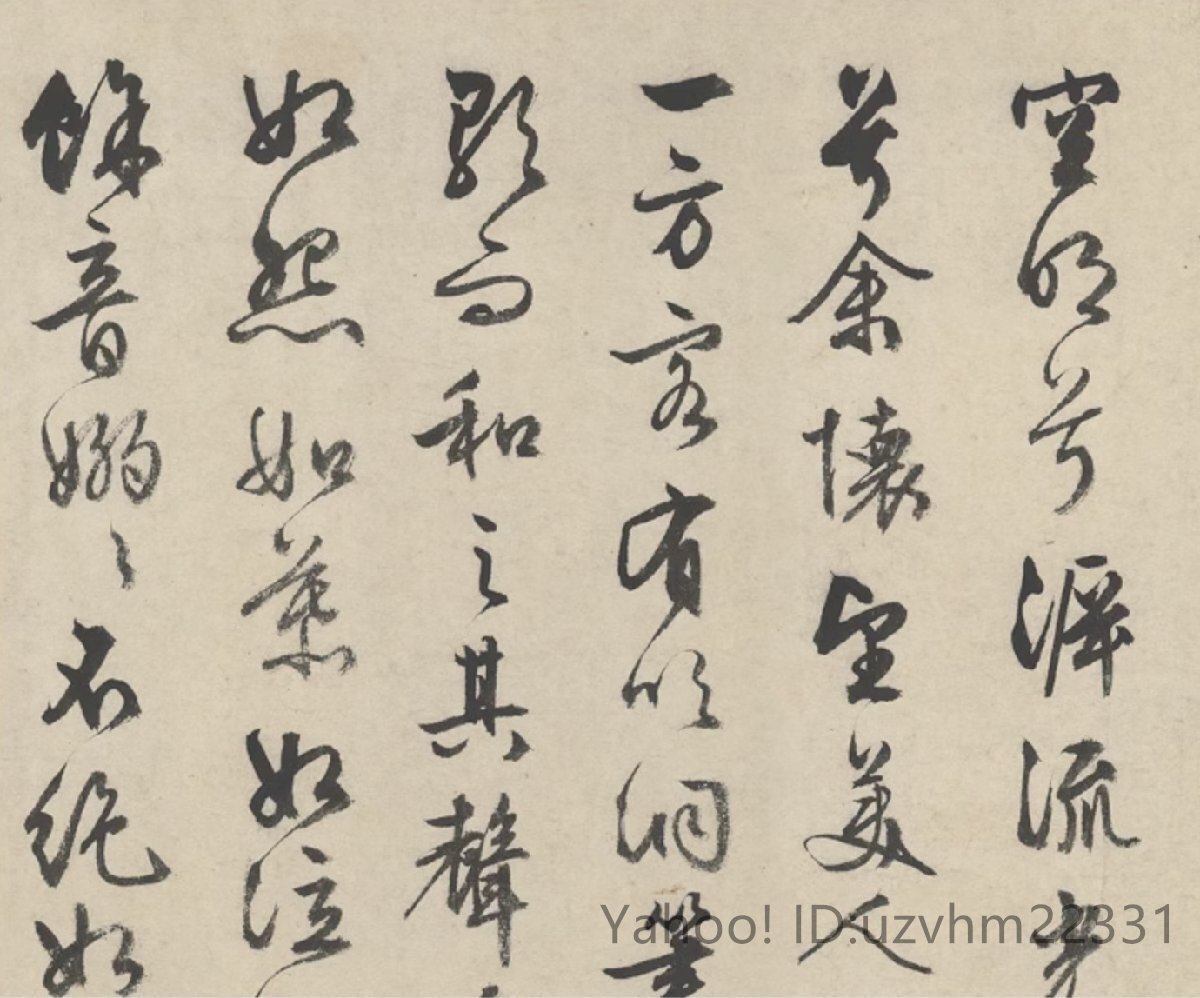 空明兮流光
兮余懷望美人
一方客有吹洞簫
歌而和之其聲
如怨如慕如泣
餘音嫋〻不絕如
Yahoo! ID:uzvhm22331